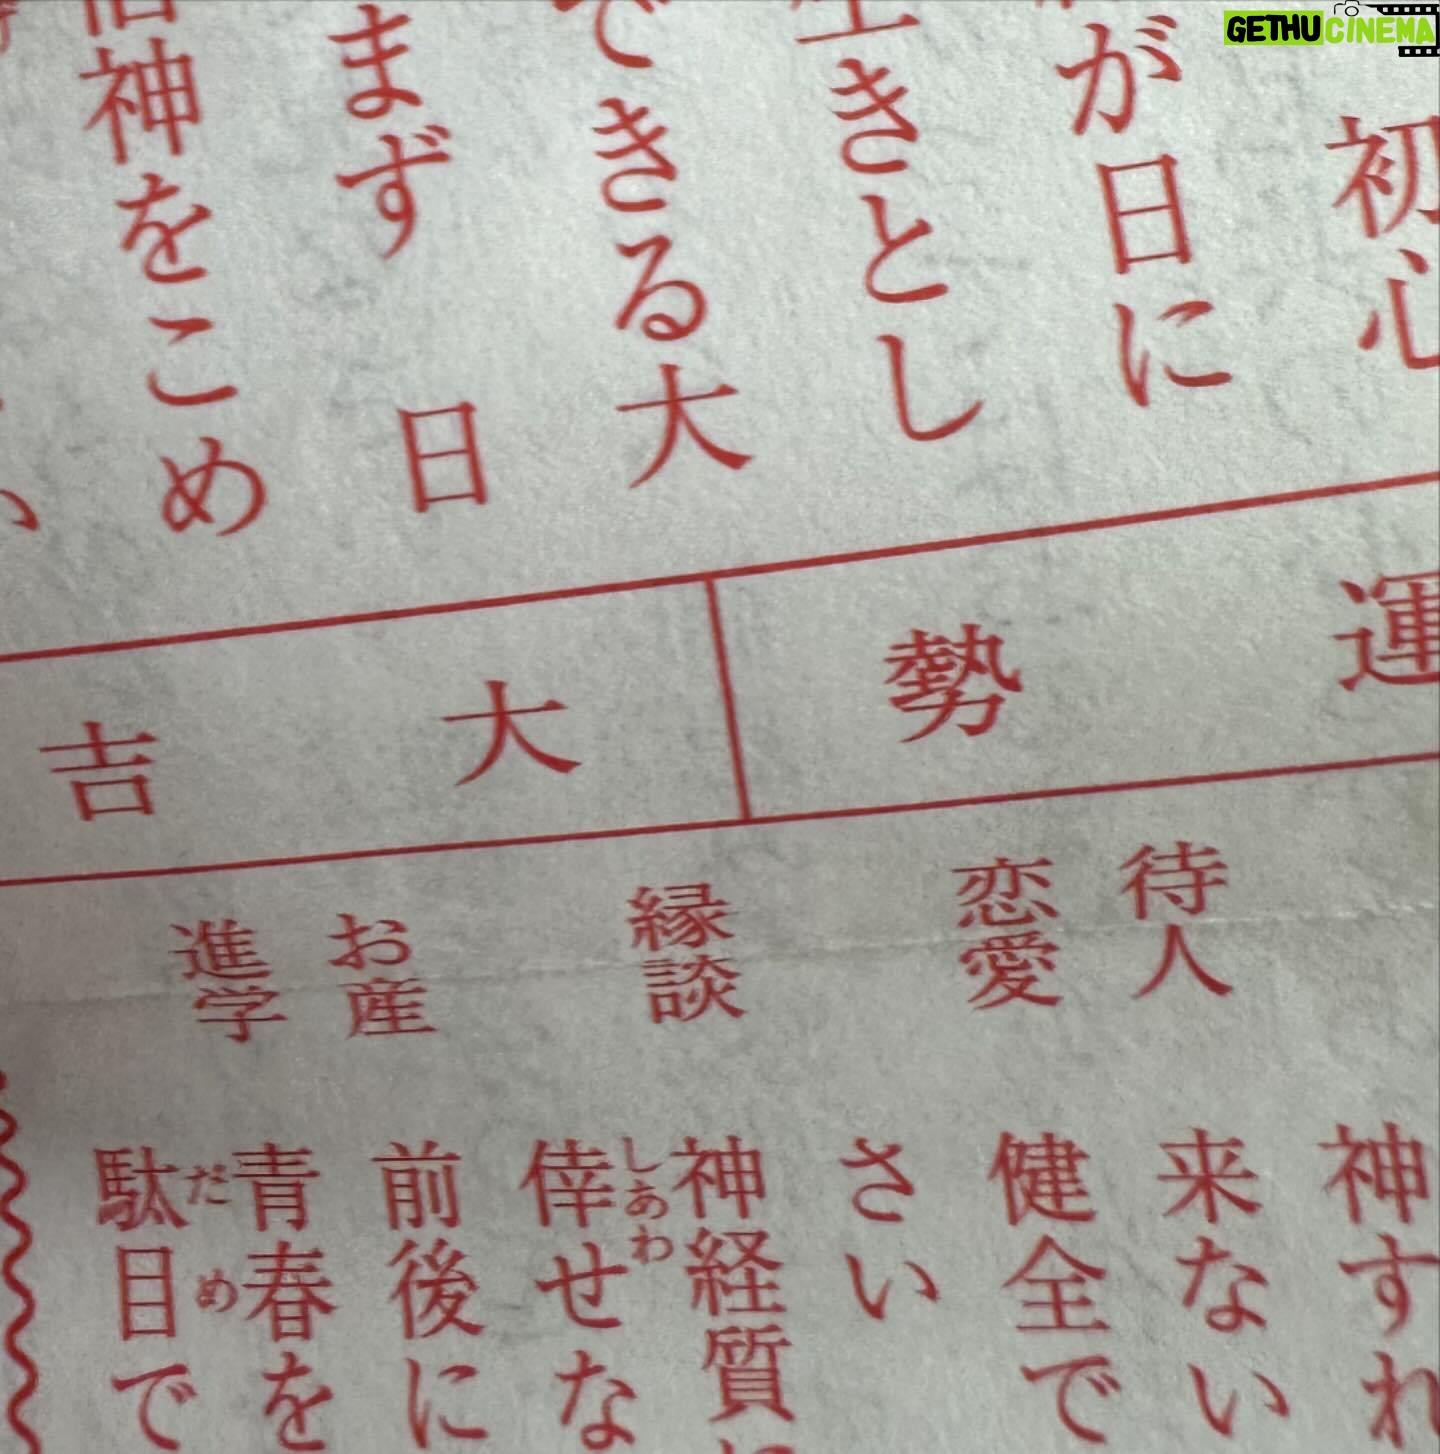 GETHUCINEMA
初心
が日に
生きとし
できる大
まず 日
神をこめ
運勢
大吉
神すれ
待人 来ない
恋愛 健全で
さい
縁談 神経質に
倖せな
しあわ
お産 前後に
進学 青春を
駄目で
だめ